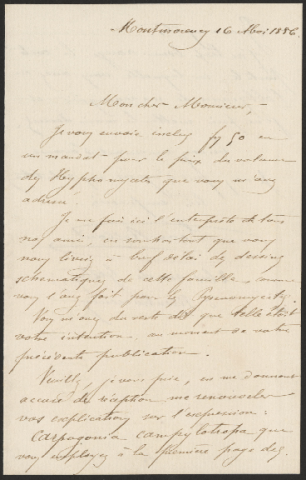 Montmorency 16 Mai 1886
Mon cher Monsieur,
Je vous envoie inclus f 50 en
un mandat pour le prix du volume
des Hyphomycetes que vous m'avez
adressé.
Je me fais ici l'interprète de tous
nos amis, en souhaitant que vous
nous livriez à bref délai des dessins
schematiques de cette famille, comme
vous l'avez fait pour les Pyrenomycètes.
Vous m'avez du reste dit que telle était
votre intention, au moment de votre
précédente publication.
Veuillez, je vous prie, en me donnant
accusé de réception me renouveler
vos explications sur l'expression:
Carpogonia campylotropa que
vous employez à la première page des